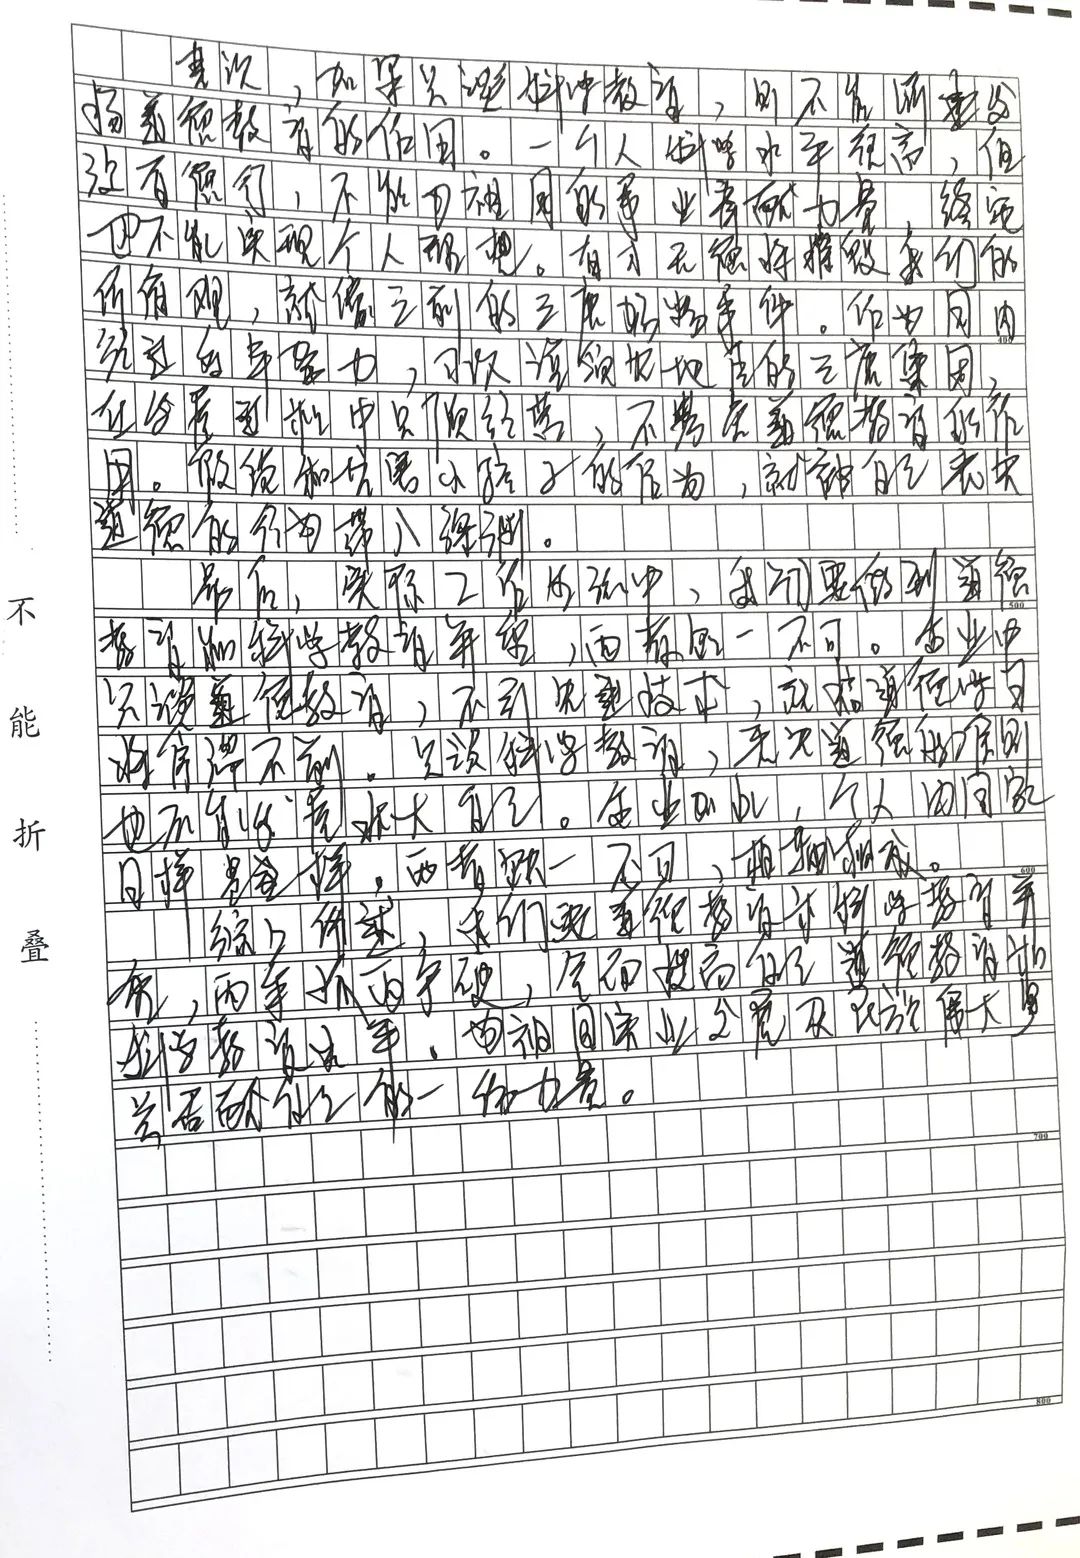 其次，如果只谈科学教育，则不能所
扬道德教育的作用。一个人科学水平很高，但
没有德行，不能为祖国的事业奉献力量，终究
也不能实现个人理想。有才无德将摧毁我们的
所有观，就像之前的三鹿奶粉事件。作为国内
知名的三鹿集团，
在发展过程中只顾经营，不考虑道德教育的作
用。做货和坑害小孩子的行为，就被自己丧失
道德的行为带入深渊。
最后，实际工作生活中，我们要做到道德
教育和科学教育并重，两者缺一不可。企业中
只谈道德教育，不引进技术，就
将停滞不前。只谈科学教育，无视道德的原则
也不能发展壮大自己。企业如此，个人与国家
同样是这样，两者缺一不可，相辅相成。
综上所述，我们要道德教育与科学教育并
重，两手抓两手硬，全面提高自己道德教育和
科学教育水平，为祖国实业发展及民族伟大复
兴贡献自己的一份力量。
不能折叠
400
500
600
700
800